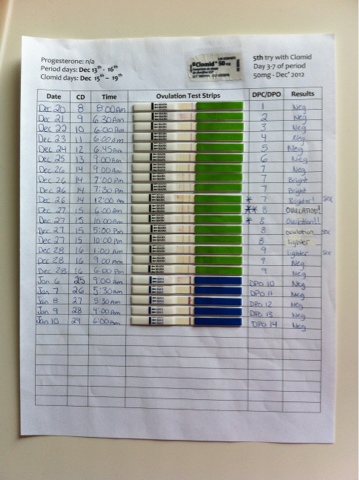 Progesterone: n/a
Period days: Dec 13th - 16th
Clomid days: Dec 15th - 19th
"Clomid" 50 mg
5th try with Clomid
Day 3-7 of period
50mg - Dec' 2012
Date CD Time Ovulation Test Strips DPC/DPO Results
Dec 20 8 8:00am 1 Neg
Dec 21 9 6:30am 2 Neg
Dec 22 10 6:00am 3 Neg
Dec 23 11 6:00am 4 Neg
Dec 24 12 6:45am 5 Neg
Dec 25 13 9:00am 6 Neg
Dec 26 14 9:00am 7 Neg
Dec 26 14 7:00pm 7 Bright
Dec 26 14 7:30pm 7 Bright
Dec 26 14 12:00am * 7
Dec 27 15 6:00am ** 8 Ovulation!!
Dec 27 15 10:00am * 8 Ovulation!!
Dec 27 15 5:00pm 8 ovulation
Dec 27 15 10:00pm 8 lighter
Dec 28 16 1:00am 9 lighter
Dec 28 16 9:00am 9 Neg
Dec 28 16 6:00pm 9 Neg
Jan 6 25 9:00am DPO 10 Neg
Jan 7 26 5:30am DPO 11 Neg
Jan 8 27 5:30am DPO 12 Neg
Jan 9 28 4:00am DPO 13 Neg
Jan 10 29 6:00am DPO 14 Neg